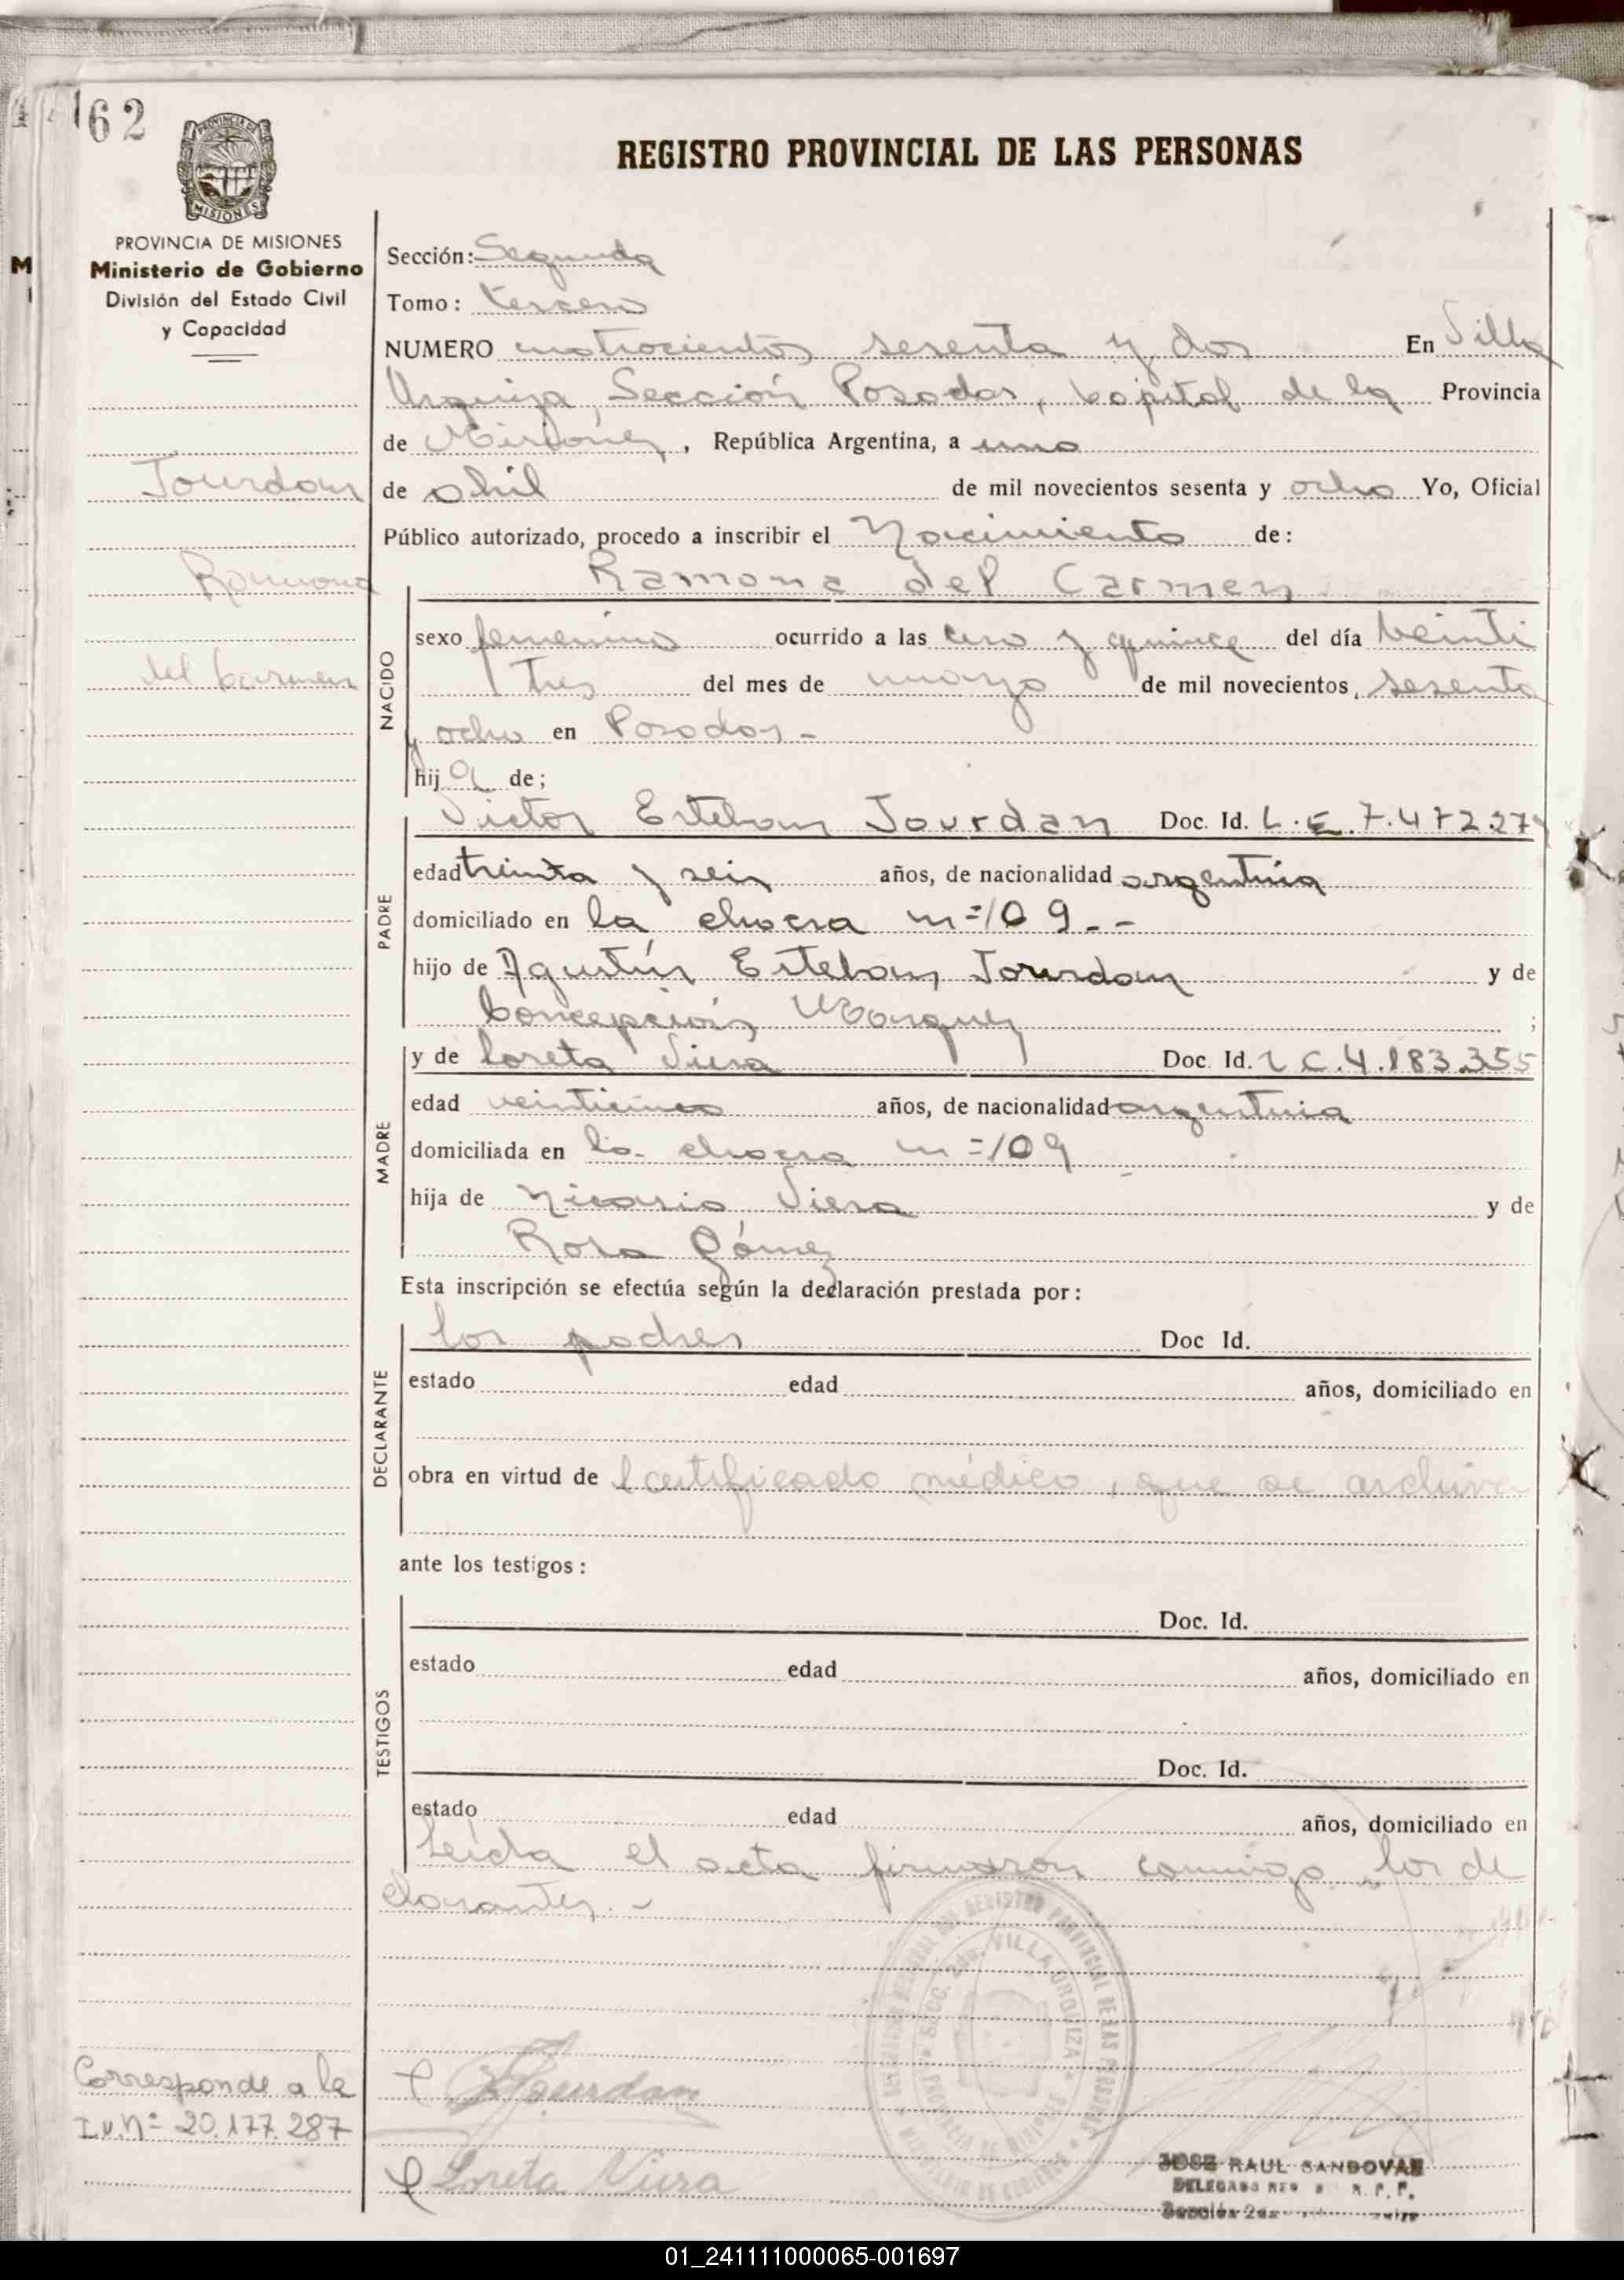 162
PROVINCIA DE MISIONES
MISIONES
REGISTRO PROVINCIAL DE LAS PERSONAS
PROVINCIA DE MISIONES
Ministerio de Gobierno
División del Estado Civil
y Capacidad
Jourdan
Ramona
del Carmen
Sección: Segunda
Tomo: tercero
NUMERO cuatrocientos sesenta y dos En Villa
Urquiza, Sección Posadas, Capital de la Provincia
de Misiones, República Argentina, a uno
de abril de mil novecientos sesenta y ocho Yo, Oficial
Público autorizado, procedo a inscribir el Nacimiento de:
Ramona del Carmen
NACIDO
sexo femenino ocurrido a las cero y quince del día veinti
tres del mes de marzo de mil novecientos, sesenta
y ocho en Posadas -
hija de;
PADRE
Victor Esteban Jourdan Doc. Id. L.E. 7.472.274
edad treinta y seis años, de nacionalidad argentina
domiciliado en la chacra nº 109 --
hijo de Agustín Esteban Jourdan y de
Concepción Marquez ;
MADRE
y de Loreta Viera Doc. Id. L C. 4.183.355
edad veinticinco años, de nacionalidad argentina
domiciliada en la chacra nº 109
hija de Nicasio Viera y de
Rosa Gómez
Esta inscripción se efectúa según la declaración prestada por:
DECLARANTE
los padres Doc Id.
estado edad años, domiciliado en
obra en virtud de l certificado médico, que se archiva
ante los testigos:
TESTIGOS
Doc. Id.
estado edad años, domiciliado en
Doc. Id.
estado edad años, domiciliado en
Leída el acta firmaron conmigo los de
clarantes. -
Corresponde a la
I.v.Nº 20.177.287
Jourdan
Loreta Viera
SECC. 2da. VILLA URQUIZA
JOSE RAUL SANDOVAL
DELEGADO R. P. P.
Sección 2da
01_241111000065-001697